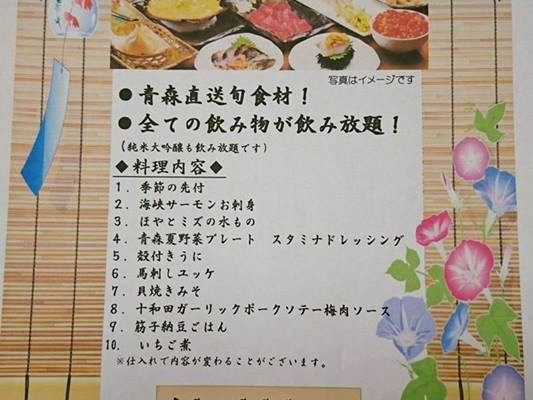 写真はイメージです
●青森直送旬食材！
●全ての飲み物が飲み放題！
（純米大吟醸も飲み放題です）
◆料理内容◆
1．季節の先付
2．海峡サーモンお刺身
3．ほやとミズの水もの
4．青森夏野菜プレート　スタミナドレッシング
5．殻付きうに
6．馬刺しユッケ
7．貝焼きみそ
8．十和田ガーリックポークソテー梅肉ソース
9．筋子納豆ごはん
10．いちご煮
※仕入れで内容が変わることがございます。